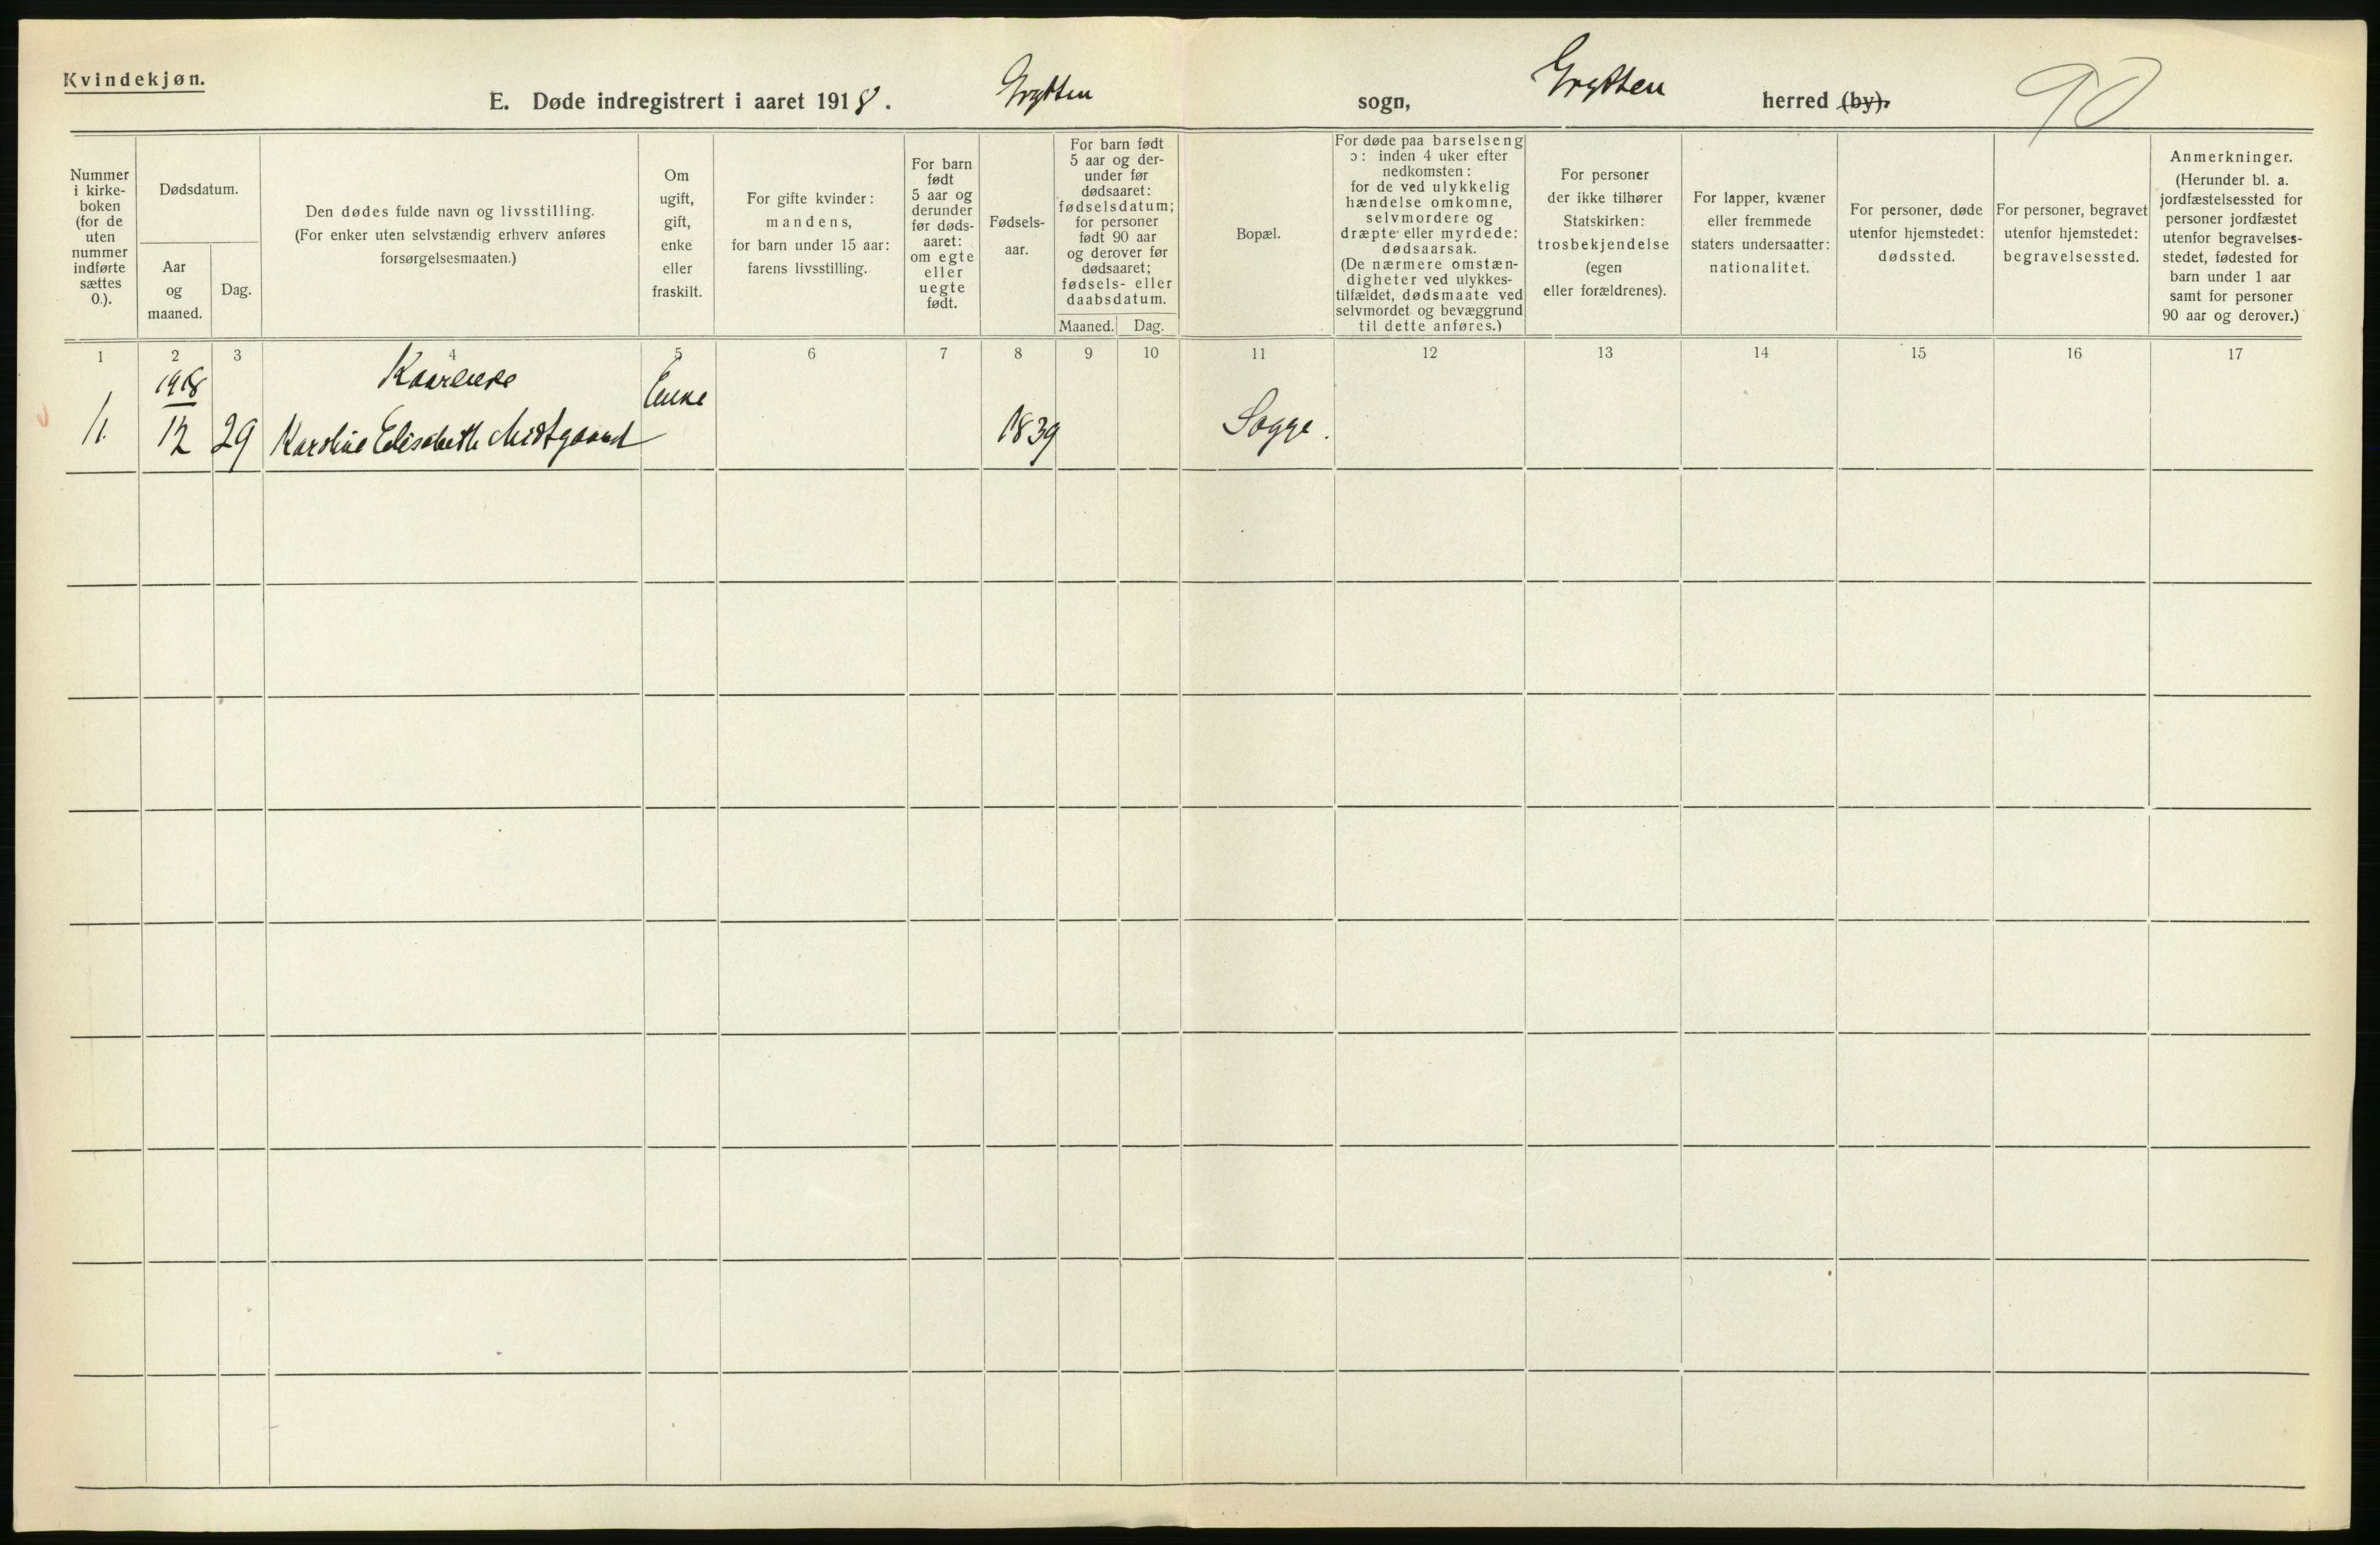 Kvindekjøn.
E. Døde indregistrert i aaret 1918. Grytten sogn, Grytten herred (by). 90
Nummer
i kirke-
boken
(for de
uten
nummer
indførte
sættes
0.).
Dødsdatum.
Aar
og
maaned.
Dag.
Den dødes fulde navn og livsstilling.
(For enker uten selvstændig erhverv anføres
forsørgelsesmaaten.)
Om
ugift,
gift,
enke
eller
fraskilt.
For gifte kvinder:
mandens,
for barn under 15 aar:
farens livsstilling.
For barn
født
5 aar og
derunder
før døds-
aaret:
om egte
eller
uegte
født.
Fødsels-
aar.
For barn født
5 aar og der-
under før
dødsaaret:
fødselsdatum;
for personer
født 90 aar
og derover før
dødsaaret;
fødsels- eller
daabsdatum.
Maaned. Dag.
Bopæl.
For døde paa barselseng
ɔ: inden 4 uker efter
nedkomsten:
for de ved ulykkelig
hændelse omkomne,
selvmordere og
dræpte eller myrdede:
dødsaarsak.
(De nærmere omstæn-
digheter ved ulykkes-
tilfældet, dødsmaate ved
selvmordet og bevæggrund
til dette anføres.)
For personer
der ikke tilhører
Statskirken:
trosbekjendelse
(egen
eller forældrenes).
For lapper, kvæner
eller fremmede
staters undersaatter:
nationalitet.
For personer, døde
utenfor hjemstedet:
dødssted.
For personer, begravet
utenfor hjemstedet:
begravelsessted.
Anmerkninger.
(Herunder bl. a.
jordfæstelsessted for
personer jordfæstet
utenfor begravelses-
stedet, fødested for
barn under 1 aar
samt for personer
90 aar og derover.)
1 2 3 4 5 6 7 8 9 10 11 12 13 14 15 16 17
1918 Kaarenke Enke
11. 12 29 Karoline Elisabeth Midtgaard 1839 Sogge.